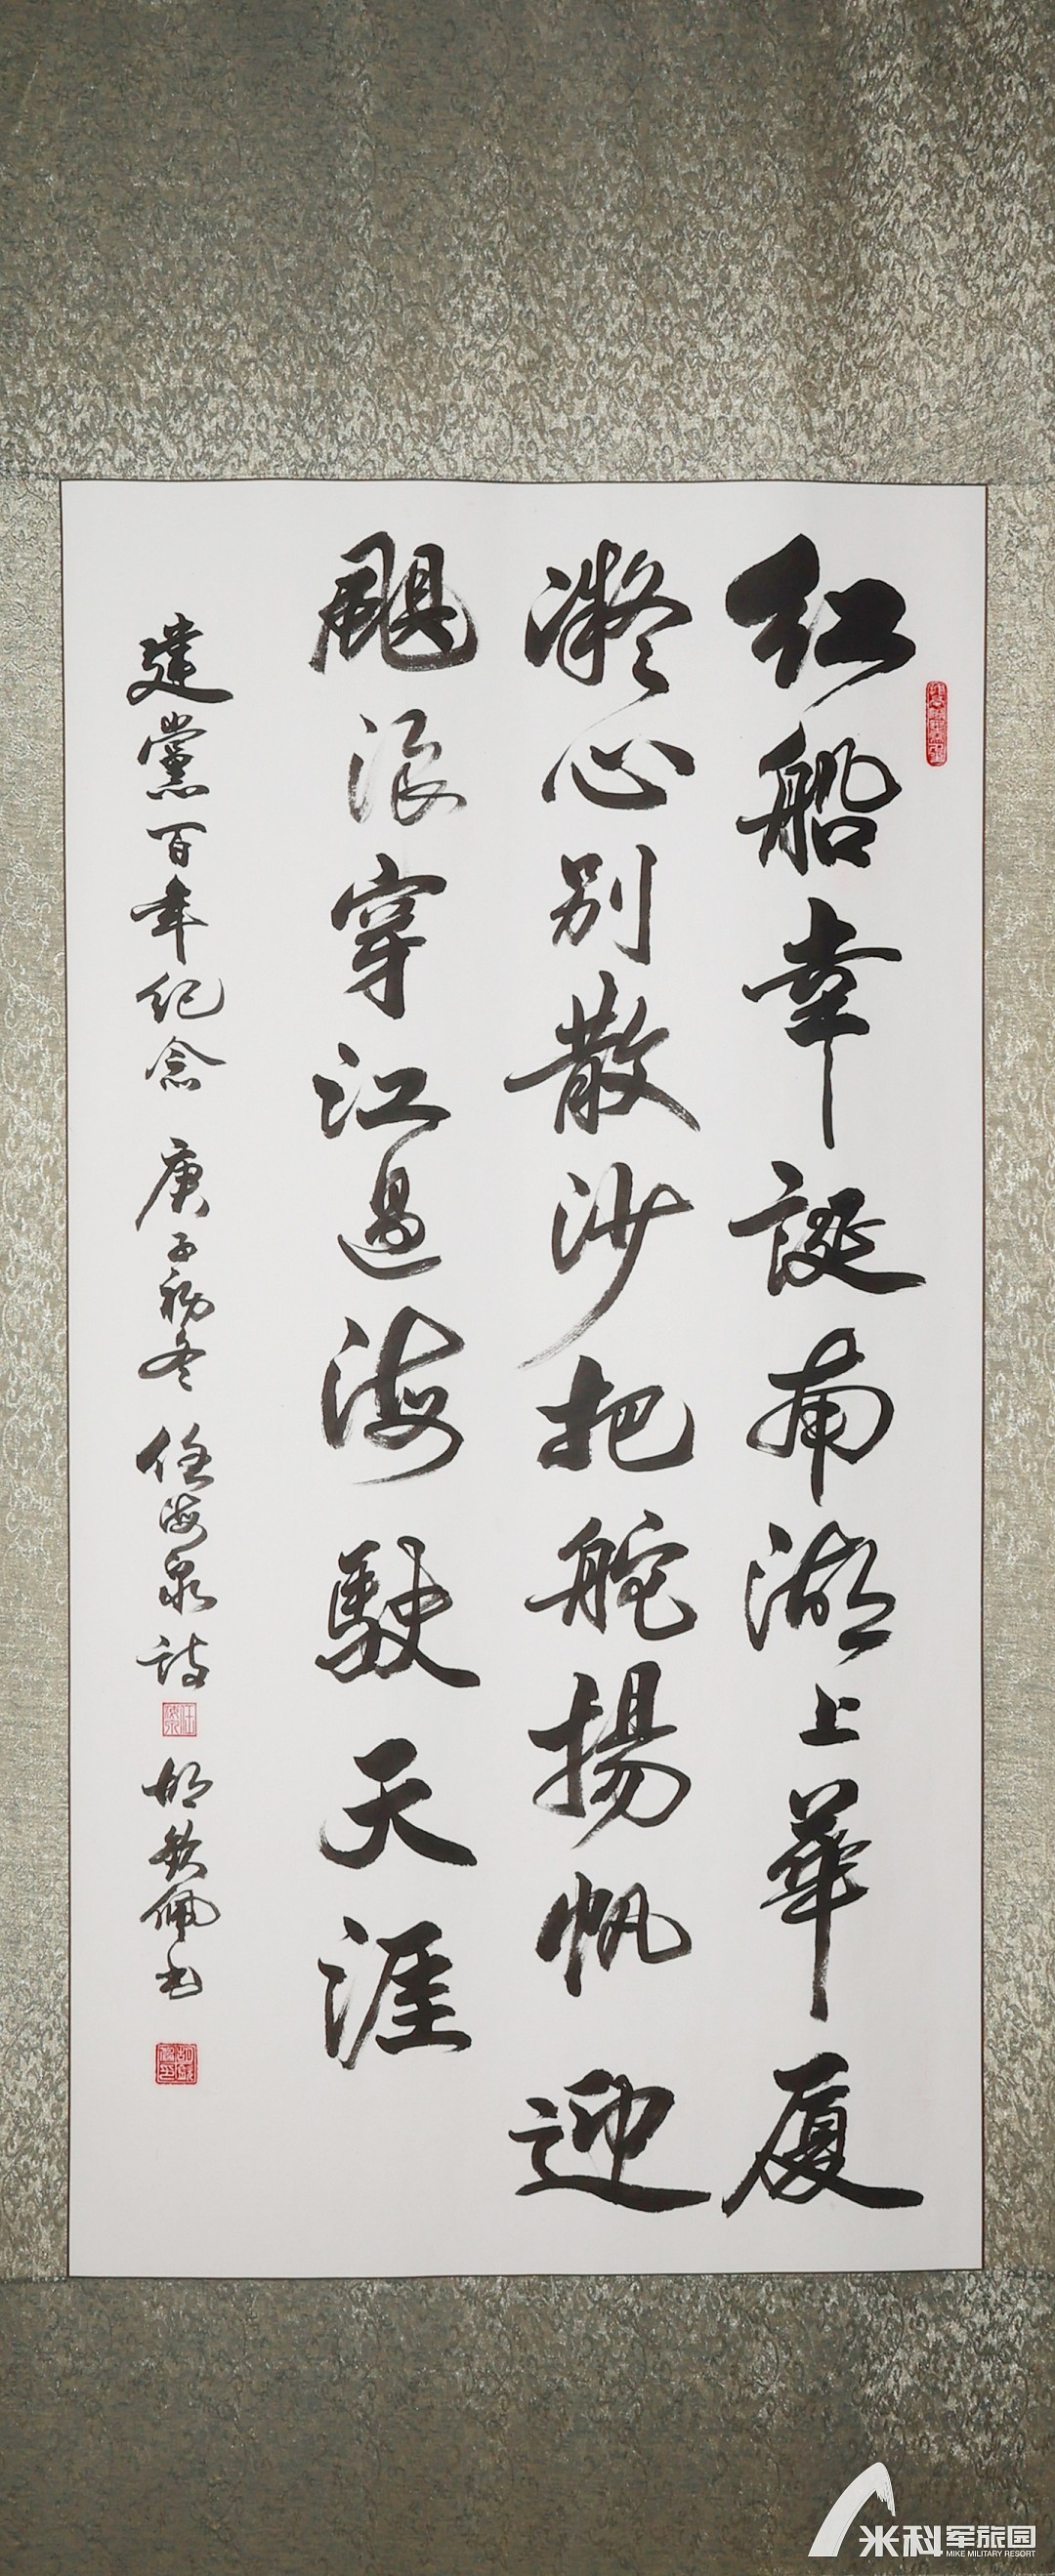 红船幸誕南湖上華厦
凝心别散沙把舵揚帆迎
飓浪穿江過海駛天涯
建黨百年纪念 庚子初冬 任海泉诗 胡敘佩书
米科军旅园
MIKE MILITARY RESORT